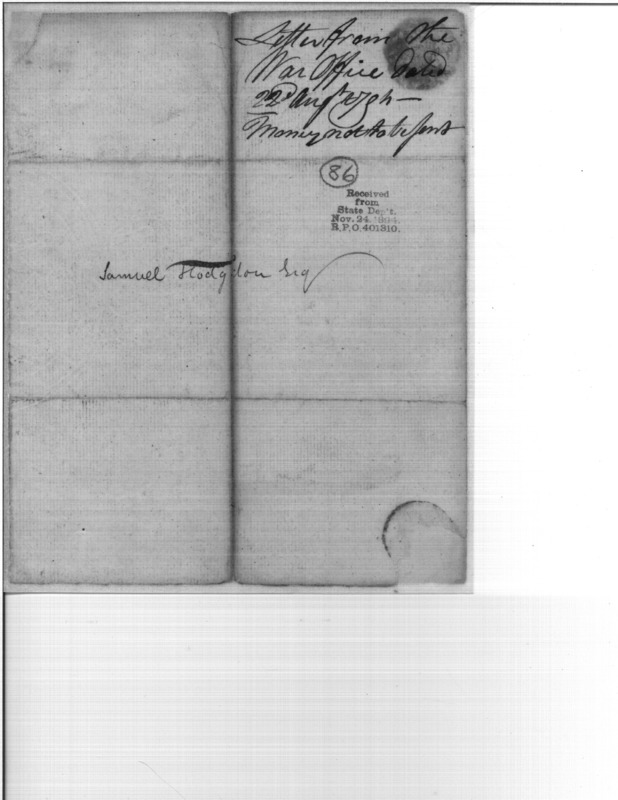 Letter from the
War Office Dated
22d Augt 1794 —
Money not to be sent
86
Received
from
State Dep't.
Nov. 24. 1894.
R.P.O. 401310.
Samuel Hodgdon Esq